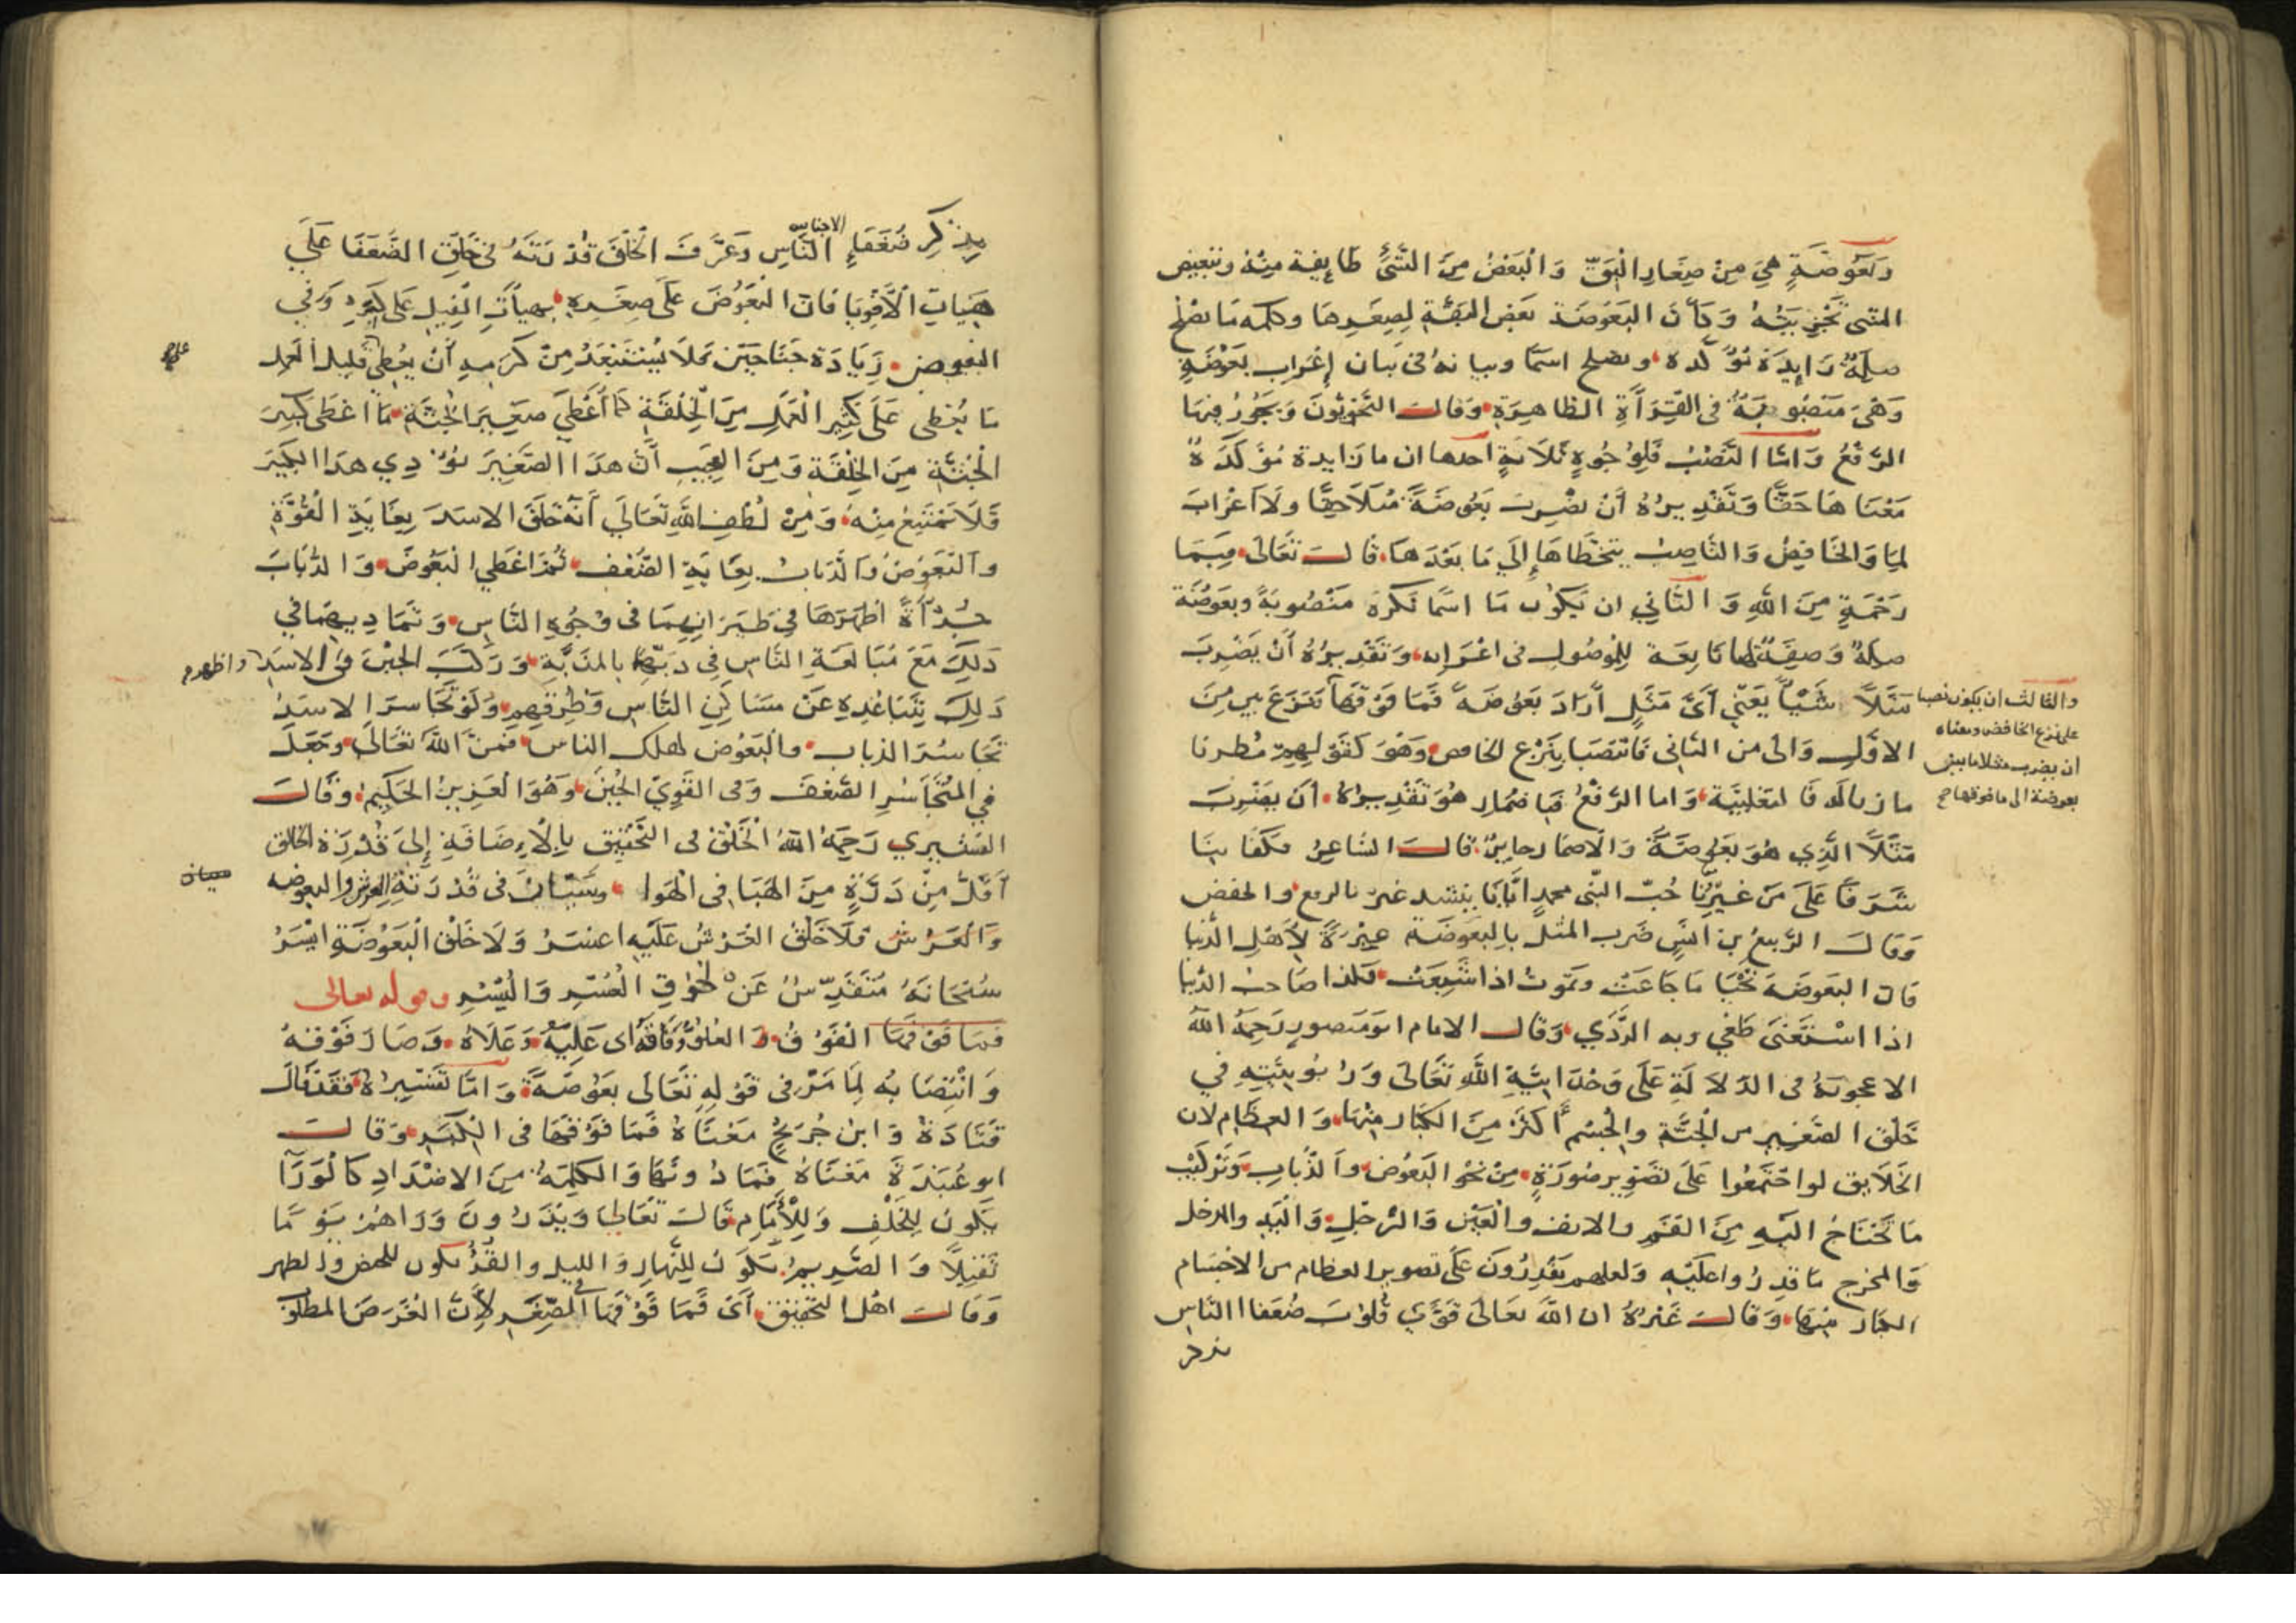 وبعوضة هي من صغار البق والبعض من الشئ طايفة منه وتبعيض
الشي تجزيته وكأن البعوضة بعض البقة لصغرها وكلمه ما يصلح
صلة زايدة مؤكده ويصلح اسما وبيانه في بيان إعراب بعوضة
وهي منصوبة في القرآة الظاهرة وقال النحويون ويجوز فيها
الرفع واما النصب فلوجوه ثلاثة احدها ان ما زايدة مؤكدة
معناها حقا وتقديره أن يضرب بعوضة مثلا حقا ولا اعراب
لما والخافض والناصب يتخطاها إلى ما بعدها قال تعالى فبما
رحمة من الله والثاني ان يكون ما اسما نكرة منصوبة وبعوضة
صلة وصفة لها تابعة للموصول في اعرابه وتقديره أن يضرب
مثلا شيأ يعني أي مثل أراد بعوضة فما فوقها فنزع بين من
الاول والى من الثاني فانتصبا بنزع الخافض وهو كقولهم مطرنا
ما زبالة فالثعلبية واما الرفع فباضمار هو تقديره أن يضرب
مثلا الذي هو بعوضة والاضمار جايز قال الشاعر فكفا بنا
شرفا على من غيرنا حب النبي محمد ايانا ينشد غير بالرفع والخفض
وقال الربيع بن انس ضرب المثل بالبعوضة عبرة لأهل الدنيا
فان البعوضة تحيا ما جاعت وتموت اذا شبعت فكذا صاحب الدنيا
اذا استغنى طغي وبه الردي وقال الامام ابو منصور رحمه الله
الاعجوبة في الدلالة على وحدانية الله تعالى وربوبيته في
خلق الصغير من الجثة والجسم أكثر من الكبار منها والعظام لان
الخلايق لو اجتمعوا على تصوير صورة من نحو البعوض والذباب وتركيب
ما تحتاج اليه من الفم والانف والعين والرجل واليد والمدخل
والمخرج ما قدروا عليه ولعلهم يقدرون على تصوير العظام من الاجسام
الكبار منها وقال غيره ان الله تعالى قوي قلوب ضعفا الناس
بذكر
والثالث ان يكون نصبا
على نزع الخافض ومعناه
ان يضرب مثلا ما بين
بعوضة الى ما فوقها صح
بذكر ضعفاء الاجناس الناس وعرف الخلق قدرته في خلق الضعفا على
هيات الأقويا فان البعوض على صغره بهيأت الفيل على كبره وفي
البعوض زيادة جناحين فلا يستبعد من كرمه أن يعطي قليل العمل
ما يعطى على كثير العمل من الخلقة كما أعطي صغير الجثة ما اعطى كبير
الجثة من الخلقة ومن العجيب أن هذا الصغير يؤذي هذا الكبير
فلا يمتنع منه ومن لطف الله تعالى أنه خلق الاسد بغاية القوة
والبعوض والذباب بغاية الضعف ثم اعطي البعوض والذباب
جرأة اظهرها في طيرانهما في وجوه الناس وتماديهما في
ذلك مع مبالغة الناس في ذبهما بالمذبة وركب الجبن في الاسد واظهر
ذلك بتباعده عن مساكن الناس وطرقهم ولو تجاسر الاسد
تجاسر الذباب والبعوض لهلك الناس فمن الله تعالى وجعل
في المتجاسر الضعف وفي القوي الجبن وهو العزيز الحكيم وقال
القشيري رحمه الله الخلق في التحقيق بالاءضافة إلى قدرة الخالق
أقل من ذرة من الهبا في الهوا وسيان في قدرته العرش والبعوضه
والعرش فلا خلق العرش عليه اعسر ولا خلق البعوضة ايسر
سبحانه متقدس عن لحوق العسر واليسر وقوله تعالى
فما فوقها الفوق العلو وفاقه اى عليه وعلاه وصار فوقه
وانتصابه لما مر في قوله تعالى بعوضة واما تفسيره فقد قال
قتادة وابن جريج معناه فما فوقها في الكبر وقال
ابو عبيدة معناه فما دونها والكلمة من الاضداد كالورآ
يكون للخلف وللأمام قال تعالى ويذرون وراهم يوما
ثقيلا والصريم يكون للنهار والليل والقرؤ يكون للحيض والطهر
وقال اهل التحقيق أي فما فوقها في الصغر لأن الغرض المطلوب
سيان